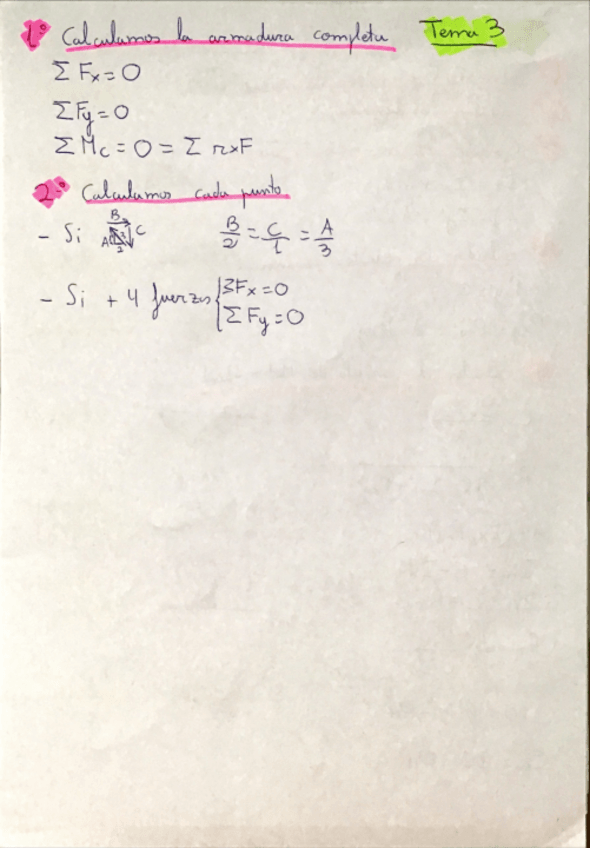 1º Calculamos la armadura completa Tema 3
Σ Fx = 0
Σ Fy = 0
Σ Mc = 0 = Σ r x F
2º Calculamos cada punto
- Si B A C 3 2 B/2 = C/1 = A/3
- Si + 4 fuerzas { ΣFx = 0
Σ Fy = 0